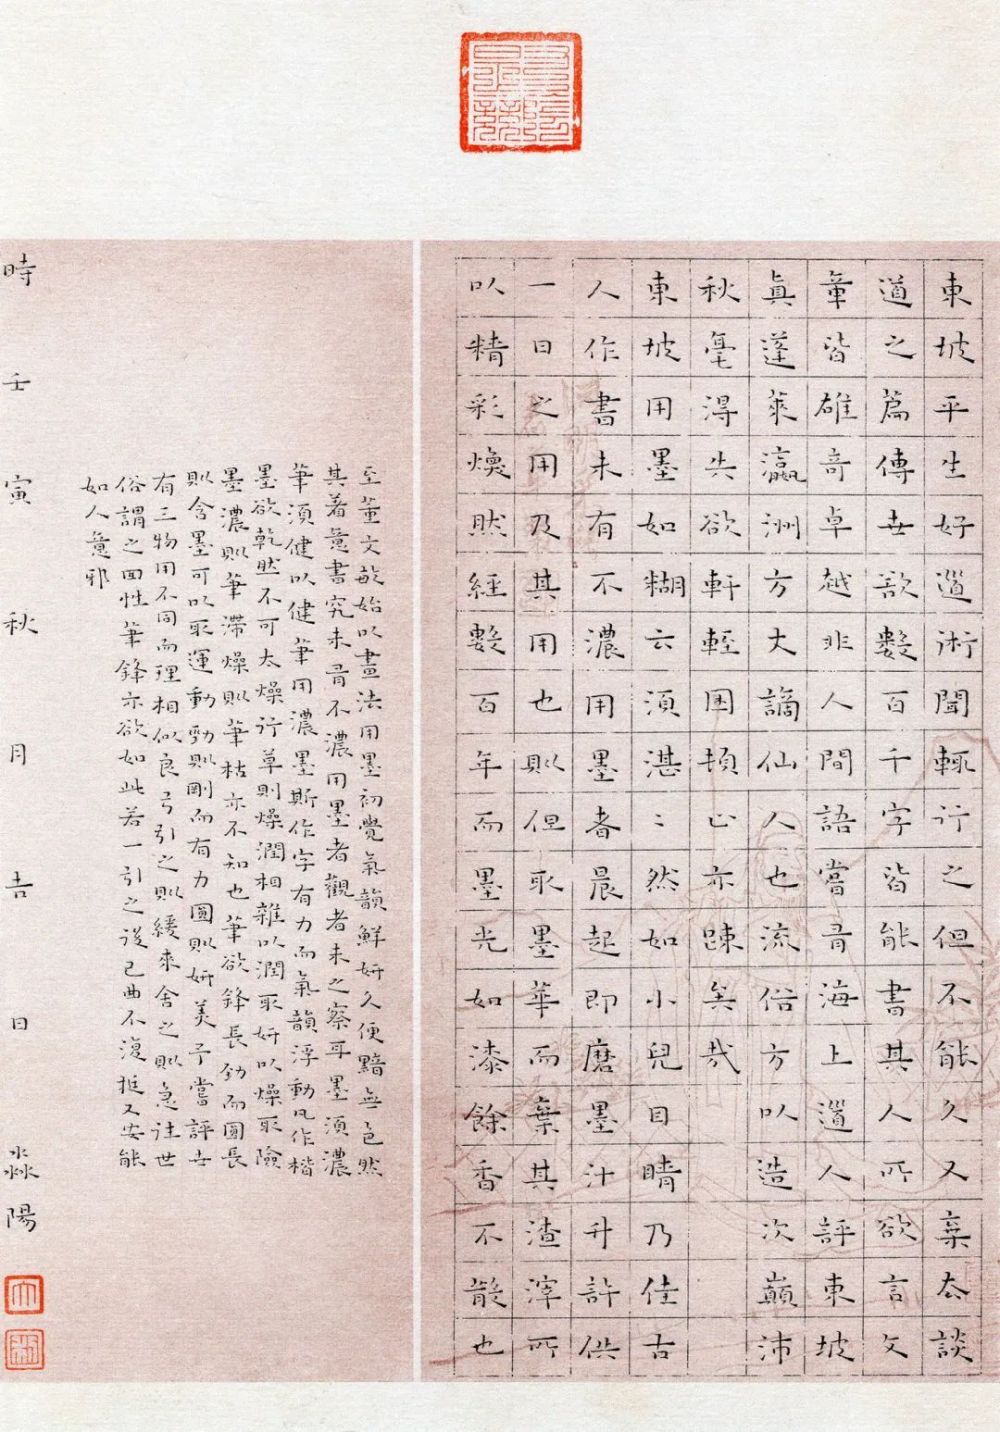 東坡平生好道術聞輒行之但不能久又棄去談
道之篇傳世欲數百千字皆能書其人所欲言文
章皆雄奇卓越非人間語嘗有海上道人評東坡
真蓬萊瀛洲方丈謫仙人也流俗方以造次顛沛
秋毫得失欲軒輊困頓之亦踈矣哉
東坡用墨如糊云須湛〻然如小兒目睛乃佳古
人作書未有不濃用墨者晨起即磨墨汁升許供
一日之用及其用也則但取墨華而棄其渣滓所
以精彩煥然經數百年而墨光如漆餘香不散也
至董文敏始以畫法用墨初覺氣韻鮮妍久便黯無色然
其著意書究未有不濃用墨者觀者未之察耳墨須濃
筆須健以健筆用濃墨斯作字有力而氣韻浮動凡作楷
墨欲乾然不可太燥行草則燥潤相雜以潤取妍以燥取險
墨濃則筆滯燥則筆枯亦不知也筆欲鋒長勁而圓長
則含墨可以取運動勁則剛而有力圓則妍美予嘗評世
有三物用不同而理相似良弓引之則緩來舍之則急往世
俗謂之回性筆鋒亦欲如此若一引之後已曲不復挺又安能
如人意邪
時壬寅秋月吉日淼陽